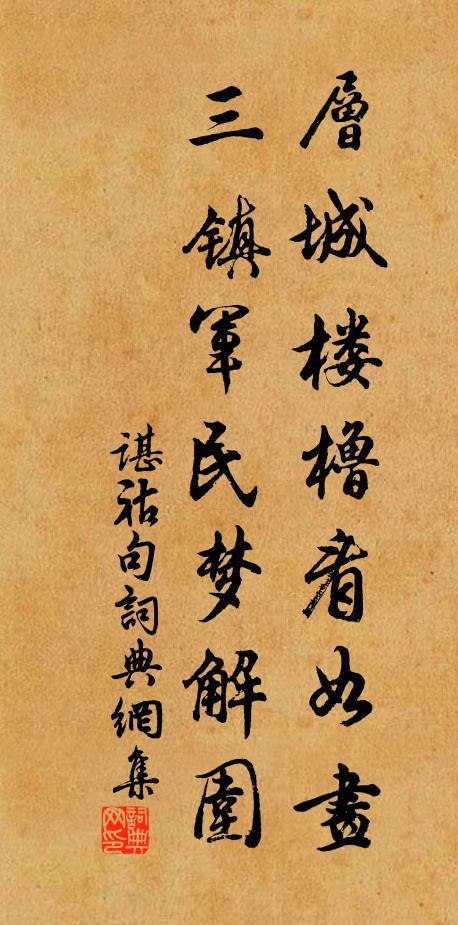 層城楼櫓看如畫
三鎮軍民梦解圍
諶祜句詞典網集
詞典网印